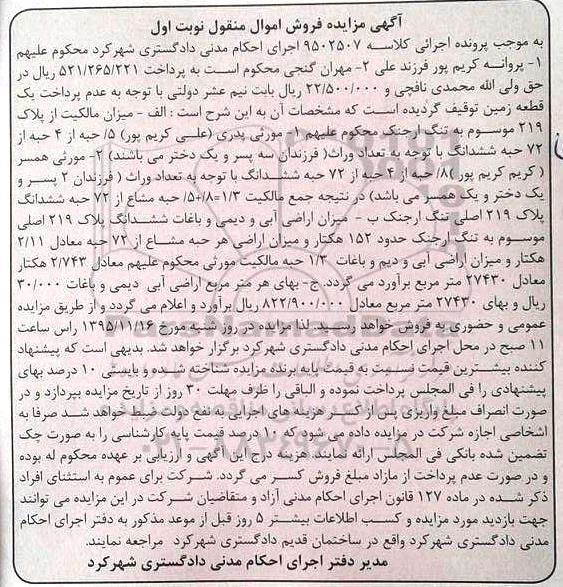 آگهی مزایده فروش اموال منقول نوبت اول
به موجب پرونده اجرائی کلاسه ۹۵۰۲۵۰۷ اجرای احکام مدنی دادگستری شهرکرد محکوم علیهم
۱- پروانه کریم پور فرزند علی ۲- مهران گنجی محکوم است به پرداخت ۵۲۱/۲۶۵/۲۲۱ ریال در
حق ولی الله محمدی نافچی و ۲۲/۵۰۰/۰۰۰ ریال بابت نیم عشر دولتی با توجه به عدم پرداخت یک
قطعه زمین توقیف گردیده است که مشخصات آن به این شرح است : الف - میزان مالکیت از پلاک
۲۱۹ موسوم به تنگ ارجنک محکوم علیهم ۱- مورثی پدری (علی کریم پور) ۵/ حبه از ۴ حبه از
۷۲ حبه ششدانگ با توجه به تعداد وراث( فرزندان سه پسر و یک دختر می باشند) ۲- مورثی همسر
( کریم کریم پور )۸/ حبه از ۴ حبه از ۷۲ حبه ششدانگ با توجه به تعداد وراث ( فرزندان ۲ پسر و
یک دختر و یک همسر می باشد) در نتیجه جمع مالکیت ۱/۳=۸/+۵/ حبه مشاع از ۷۲ حبه ششدانگ
پلاک ۲۱۹ اصلی تنگ ارجنک ب - میزان اراضی آبی و دیمی و باغات ششدانگ پلاک ۲۱۹ اصلی
موسوم به تنگ ارجنک حدود ۱۵۲ هکتار و میزان اراضی هر حبه مشاع از ۷۲ حبه معادل ۲/۱۱
هکتار و میزان اراضی آبی و دیم و باغات ۱/۳ حبه مالکیت مورثی محکوم علیهم معادل ۲/۷۴۳ هکتار
معادل ۲۷۴۳۰ متر مربع برآورد می گردد. ج- بهای هر متر مربع اراضی آبی دیمی و باغات ۳۰/۰۰۰
ریال و بهای ۲۷۴۳۰ متر مربع معادل ۸۲۲/۹۰۰/۰۰۰ ریال برآورد و اعلام می گردد و از طریق مزایده
عمومی و حضوری به فروش خواهد رسید. لذا مزایده در روز شنبه مورخ ۱۳۹۵/۱۱/۱۶ راس ساعت
۱۱ صبح در محل اجرای احکام مدنی دادگستری شهرکرد برگزار خواهد شد. بدیهی است که پیشنهاد
کننده بیشترین قیمت نسبت به قیمت پایه برنده مزایده شناخته شده و بایستی ۱۰ درصد بهای
پیشنهادی را فی المجلس پرداخت نموده و الباقی را ظرف مهلت ۳۰ روز از تاریخ مزایده بپردازد و در
صورت انصراف مبلغ واریزی پس از کسر هزینه های اجرایی به نفع دولت ضبط خواهد شد صرفا به
اشخاصی اجازه شرکت در مزایده داده می شود که ۱۰ درصد قیمت پایه کارشناسی را به صورت چک
تضمین شده بانکی فی المجلس ارائه نمایند. هزینه درج آگهی و ارزیابی بر عهده محکوم له بوده
و در صورت عدم پرداخت از مازاد مبلغ فروش کسر می گردد. شرکت برای عموم به استثنای افراد
ذکر شده در ماده ۱۲۷ قانون اجرای احکام مدنی آزاد و متقاضیان شرکت در این مزایده می توانند
جهت بازدید مورد مزایده و کسب اطلاعات بیشتر ۵ روز قبل از موعد مذکور به دفتر اجرای احکام
مدنی دادگستری شهرکرد واقع در ساختمان قدیم دادگستری شهرکرد مراجعه نمایند.
مدیر دفتر اجرای احکام مدنی دادگستری شهرکرد